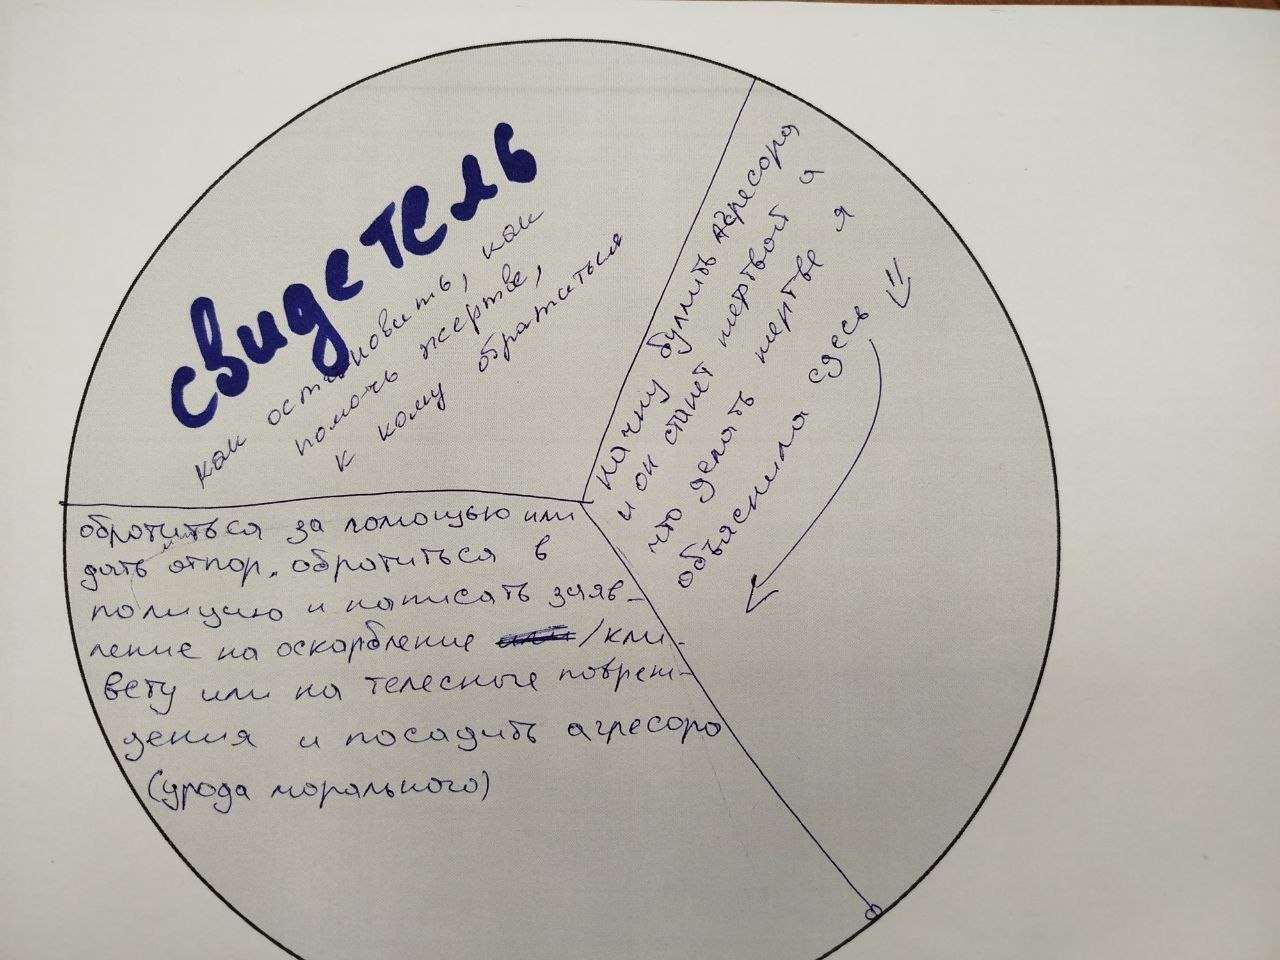 свидетель
как остановить, как
помочь жертве,
к кому обратиться
начну буллить агресора
и он станет жертвой я
что делать жертве я
объяснила сдесь
обротиться за помощью или
дать отпор. обротиться в
полицию и написать заяв-
ление на оскорбление /кли-
вету или на телесные повреж-
дения и посадить агресора
(урода морального)